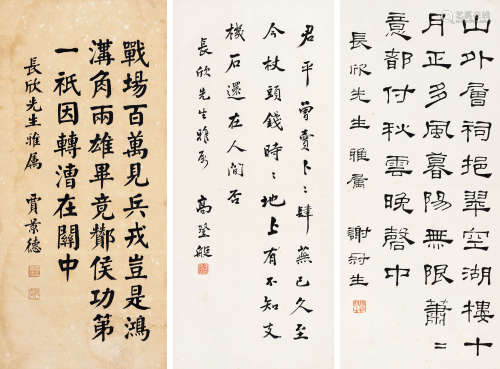 山外層祠挹翠空湖樓十
月正多風暮陽無限蕭〻
意都付秋雲晚磬中
長欣先生雅屬 謝冠生
君平曾賣卜〻肆蕪已久至
今杖頭錢時〻地上有不知支
機石還在人間否
長欣先生雅属 高登艇
戰場百萬見兵戎豈是鴻
溝角兩雄畢竟酇侯功第
一祇因轉漕在關中
長欣先生雅屬 賈景德